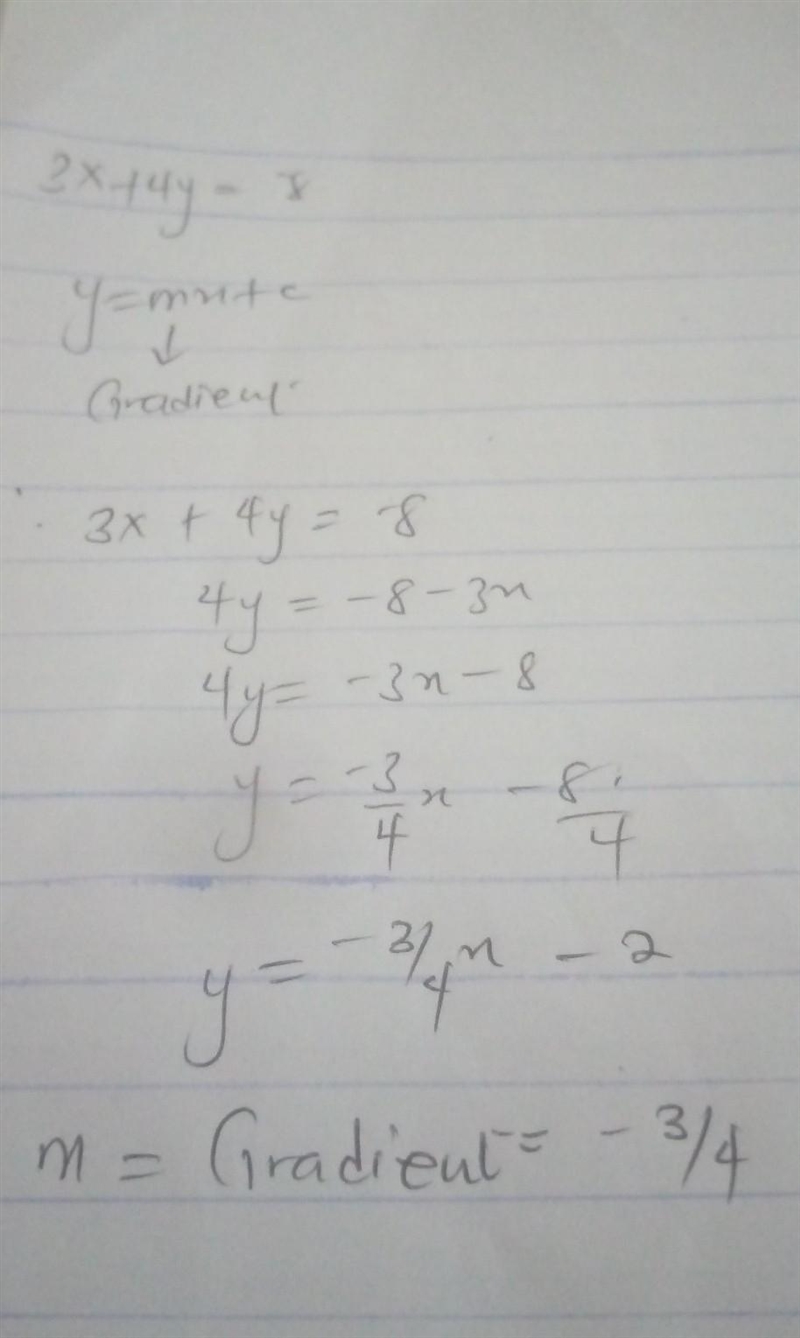 3x+4y = 8
y=mx+c
↓
Gradient
3x + 4y = -8
4y = -8-3x
4y = -3x-8
y = -3/4 x - 8/4
y = -3/4 x - 2
m = Gradient = -3/4